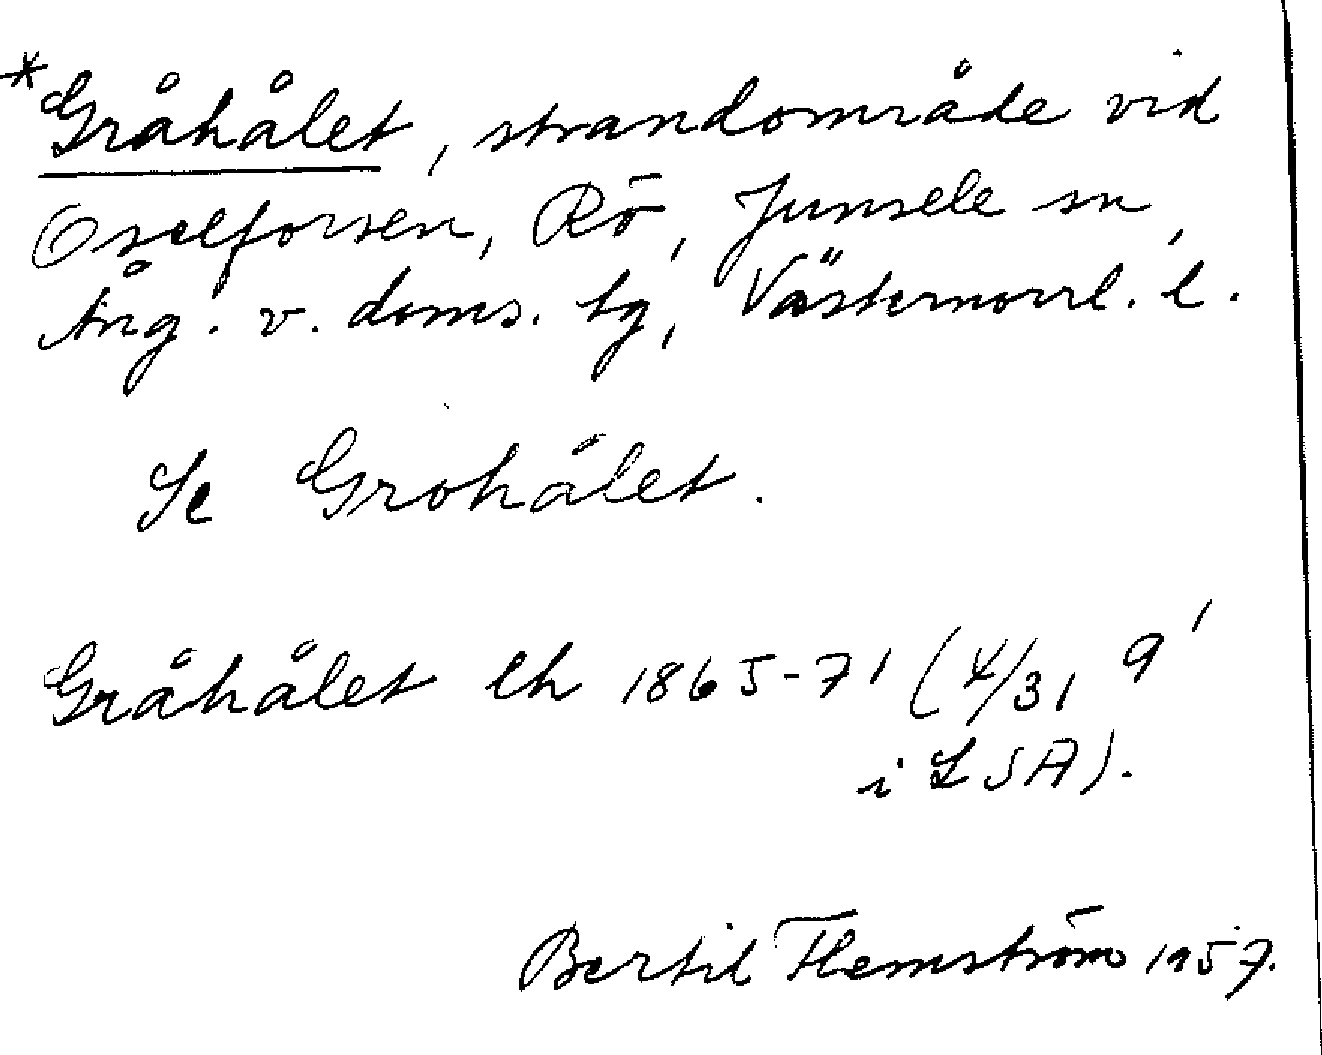 *Gråhålet, strandområde vid
Oxelforsen, Rö, Junsele sn,
Ång. v. doms. tg, Västernorrl. l.
Se Grohålet.
Gråhålet lh 1865-71 (4/31 9'
i LSA).
Bertil Flemström 1957.